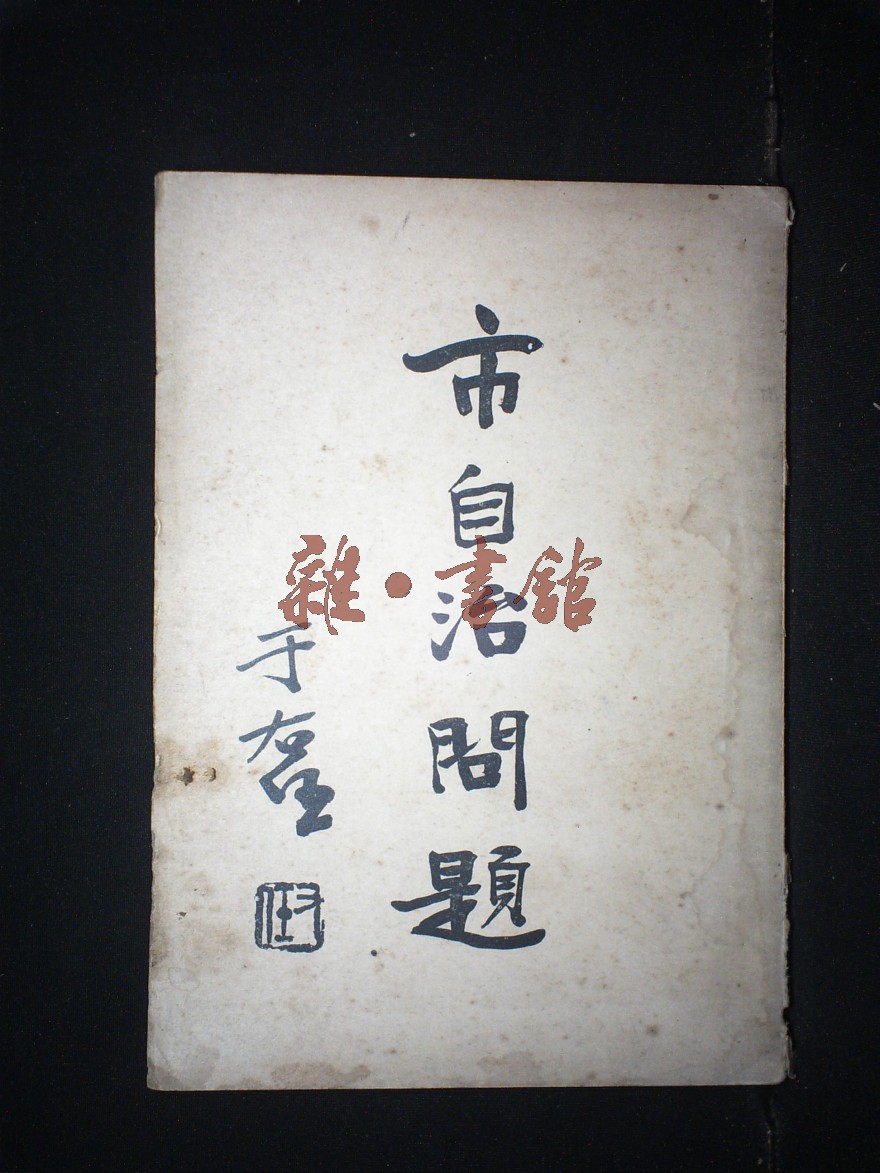 市自治問題
于右任
雜·書館